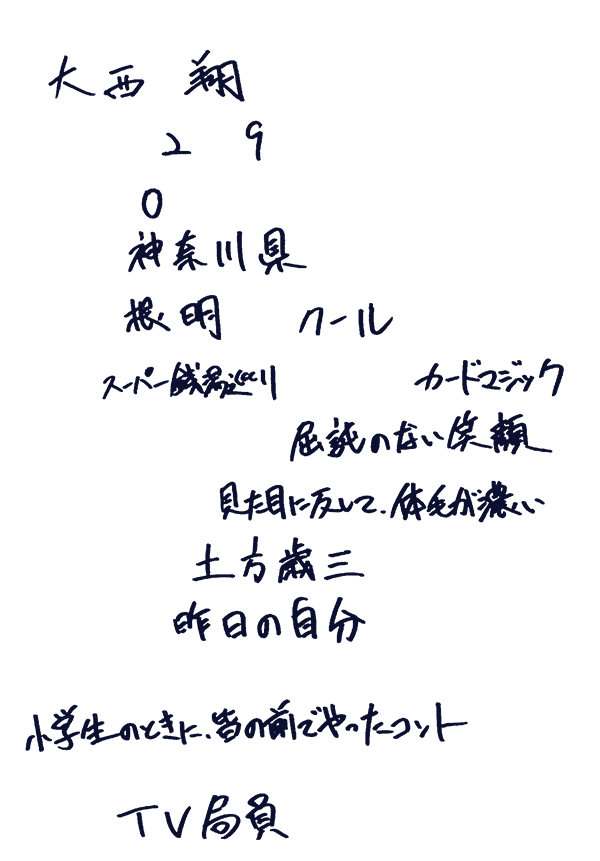 大西 翔
2 9
O
神奈川県
根明 クール
スーパー銭湯巡り カードマジック
屈託のない笑顔
見た目に反して、体毛が濃い
土方歳三
昨日の自分
小学生のときに、皆の前でやったコント
TV局員